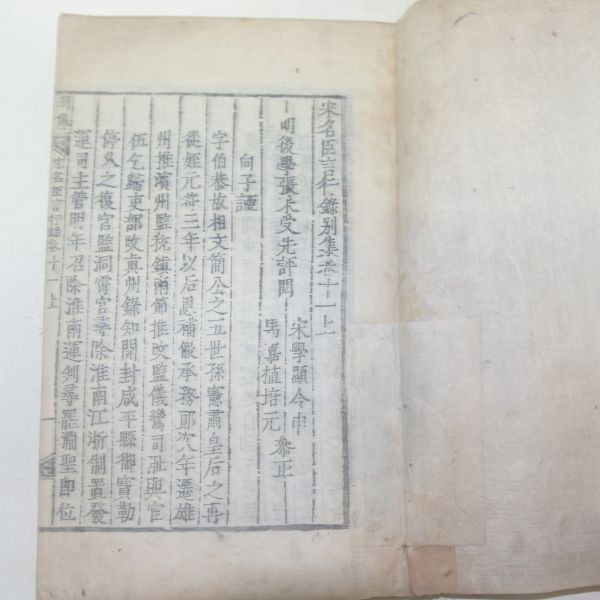 宋名臣言行錄别集卷十一上
明後學張采受先評閱
宋學顯令申
馬嘉植培元
叅正
向子諲
字伯恭故相文簡公之五世孫憲肅皇后之再
從姪元符三年以后恩補假承務郎次八年遷雄
州推濱州監稅鎮南節推改監儀鸞司
伍乞歸吏部改真州錄知開封咸平縣御寶勒
停久之復官監洞霄宮尋除淮南江浙制置發
運司主管明年召除淮南運判尋罷淵聖即位
别集
宋名臣言行錄卷十一上
一